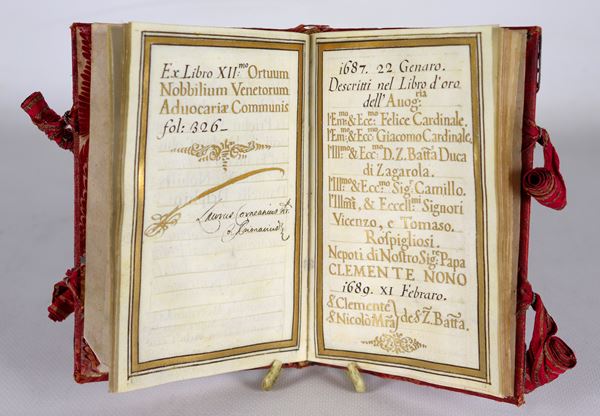 Ex Libro XII.mo Ortuum
Nobbilium Venetorum
Aduocariæ Communis
fol: 326_
1687. 22 Genaro.
Descritti nel Libro d'oro
dell' Auog:ria
l'Em:mo & Ecc:mo Felice Cardinale,
l'Em:mo & Ecc:mo Giacomo Cardinale,
l'Ill:mo & Ecc:mo D. Z. Batt:a Duca
di Zagarola.
l'Ill:mo & Ecc:mo Sig:r Camillo.
l'Ill:mi, & Eccell:mi Signori
Vicenzo, e Tomaso.
Rospigliosi.
Nepoti di Nostro Sig:re Papa
CLEMENTE NONO
1689. XI Febraro.
& Clemente
& Nicolò Mra } de & Z. Batt:a.